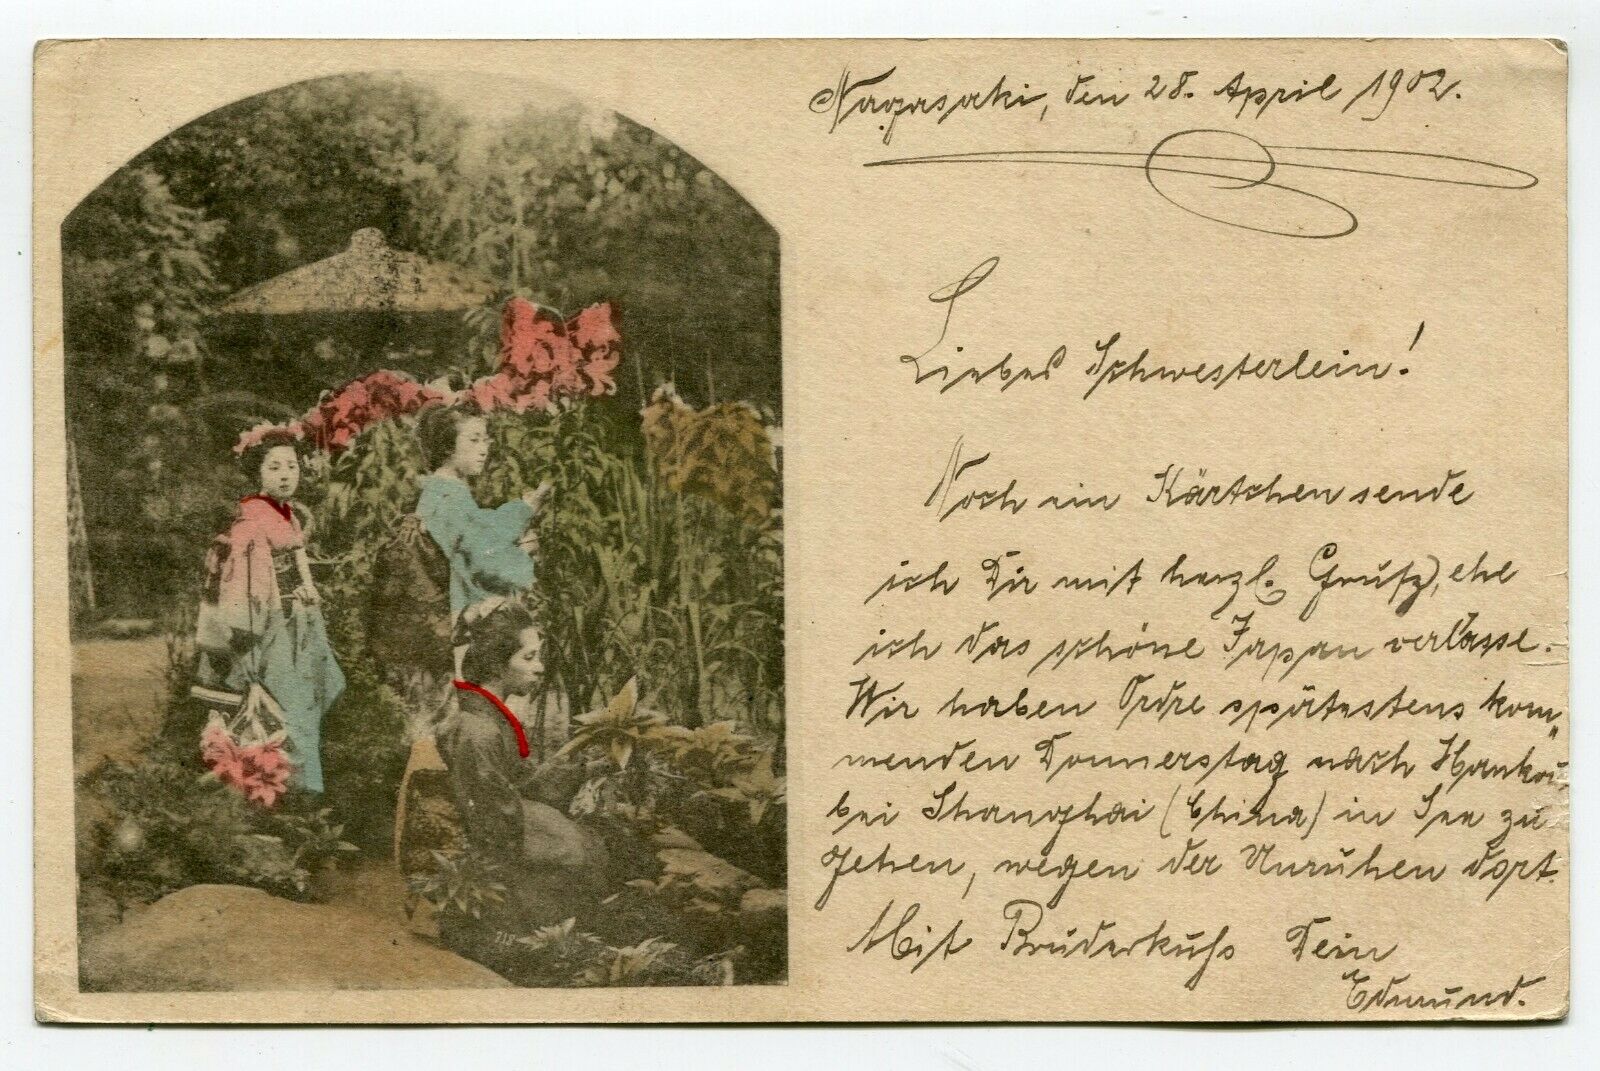 Nagasaki, den 28. April 1902.
Liebes Schwesterlein!
Noch ein Kärtchen sende
ich Dir mit herzl. Gruß, ehe
ich das schöne Japan verlasse.
Wir haben Ordre spätestens kom„
menden Donnerstag nach Hankou
bei Shanghai (China) in See zu
gehen, wegen der Unruhen dort.
Mit Bruderkuß Dein
Edmund.